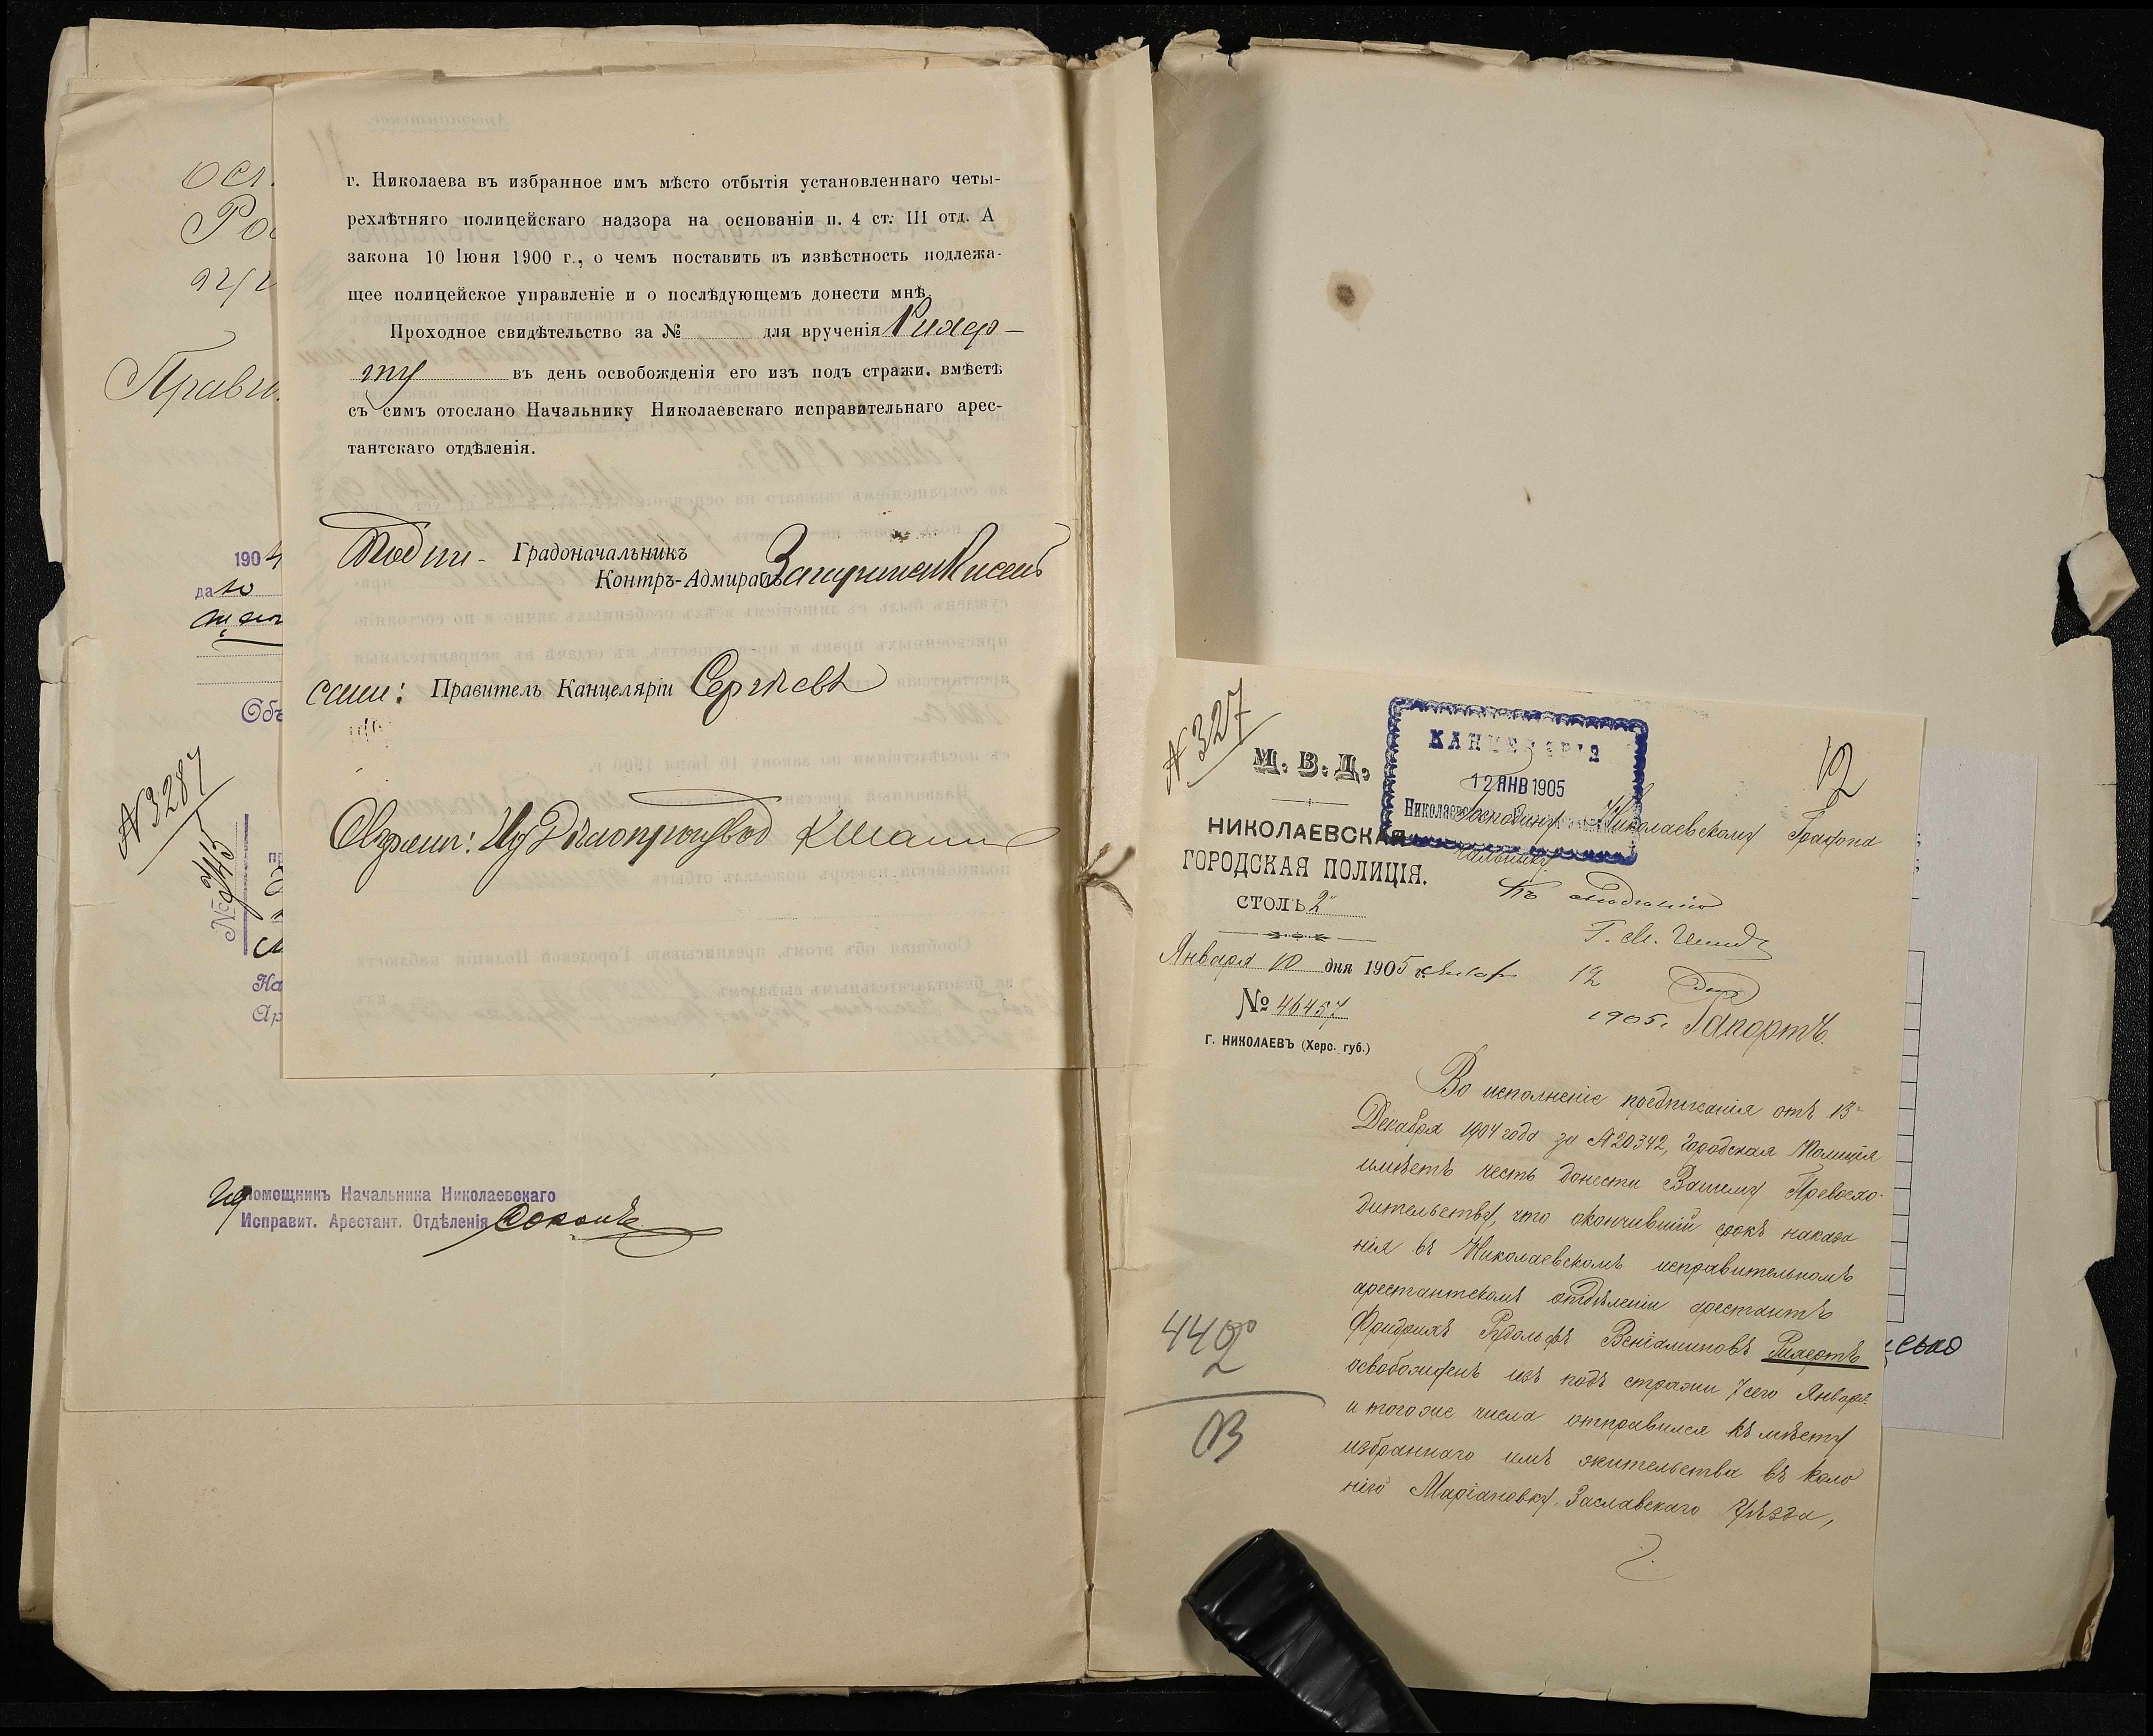 г. Николаева въ избранное имъ мѣсто отбытія установленнаго четы-
рехлѣтняго полицейскаго надзора на основаніи п. 4 ст. III отд. А
закона 10 Іюня 1900 г., о чемъ поставить въ извѣстность подлежа-
щее полицейское управленіе и о послѣдующемъ донести мнѣ.
Проходное свидѣтельство за № для врученія Рихер-
ту въ день освобожденія его изъ подъ стражи, вмѣстѣ
съ симъ отослано Начальнику Николаевскаго исправительнаго арес-
тантскаго отдѣленія.
Подпи- Градоначальникъ
Контръ-Адмиралъ
сали: Правитель Канцеляріи Сергѣевъ
190 4
да
Объ
№ 3287
№ 245
На
Ар
Помощникъ Начальника Николаевскаго
Исправит. Арестант. Отдѣленія
№ 327
12
М. В. Д.
КАНЦЕЛЯРІЯ
12 ЯНВ 1905
НИКОЛАЕВСКАЯ
ГОРОДСКАЯ ПОЛИЦІЯ.
СТОЛЪ 2
Января 10 дня 1905 г.
№ 46457
Г. НИКОЛАЕВЪ (Херс. губ.)
Господину Николаевскому Градона
чальнику.
12
1905.
Рапортъ.
Во исполненіе предписанія отъ 13
Декабря 1904 года за № 20342, Городская Полиція
имѣетъ честь донести Вашему Превосхо-
дительству, что окончившій срокъ наказа
нія въ Николаевскомъ исправительномъ
арестантскомъ отдѣленіи арестантъ
Фридрихъ Рудольфъ Веніаминовъ Рихертъ
освобожденъ изъ подъ стражи 7 сего Января
и того же числа отправился къ мѣсту
избраннаго имъ жительства въ коло
нію Маріановку, Заславскаго уѣзда,
442